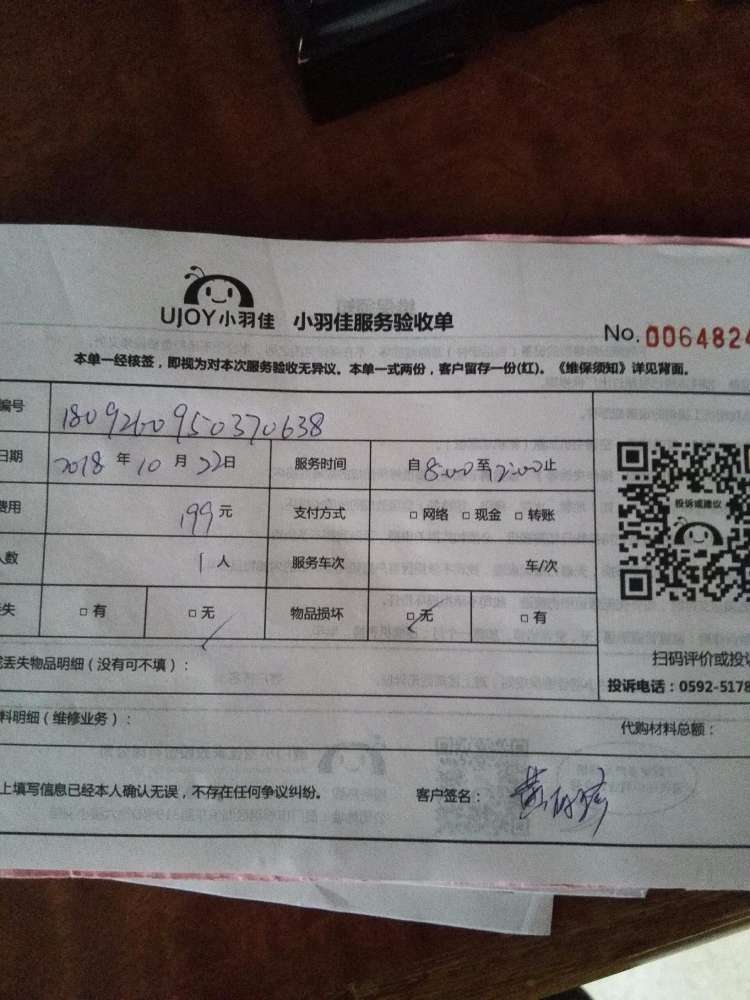 UJOY小羽佳 小羽佳服务验收单
No. 0064824
本单一经核签，即视为对本次服务验收无异议。本单一式两份，客户留存一份(红)。《维保须知》详见背面。
编号 1809260950370638
日期 2018 年 10 月 22日 服务时间 自 8:00 至 12:00 止
费用 199 元 支付方式 □ 网络 □ 现金 □ 转账
人数 1 人 服务车次 车/次
丢失 □ 有 □ 无 物品损坏 □ 无 □ 有
投诉或建议
扫码评价或投诉
丢失物品明细（没有可不填）：
投诉电话：0592-5178
料明细（维修业务）： 代购材料总额：
上填写信息已经本人确认无误，不存在任何争议纠纷。 客户签名：